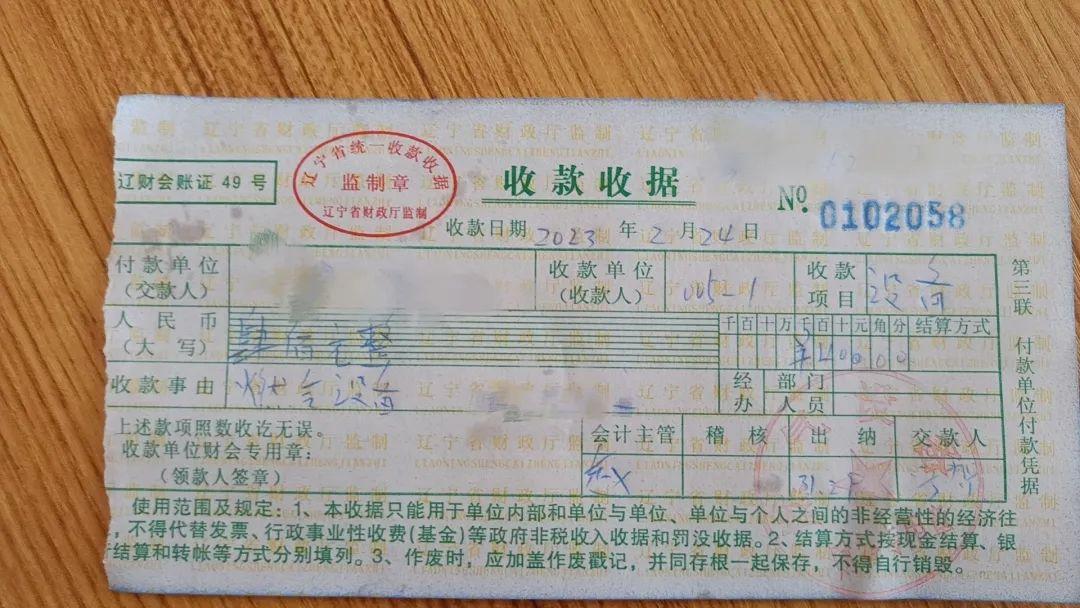 辽财会账证 49 号
辽宁省统一收款收据
监制章
辽宁省财政厅监制
收款收据
№ 0102058
收款日期 2023 年 2 月 24 日
付款单位
(交款人)
收款单位
(收款人)
005-1
收款
项目
设备
人民币
(大写)
肆佰元整
千百十万千百十元角分
结算方式
¥40000
收款事由
燃气设备
经办
部门
人员
上述款项照数收讫无误。
收款单位财会专用章:
(领款人签章)
会计主管
稽核
出纳
交款人
第三联
付款单位付款凭据
使用范围及规定:1、本收据只能用于单位内部和单位与单位、单位与个人之间的非经营性的经济往
,不得代替发票、行政事业性收费(基金)等政府非税收入收据和罚没收据。2、结算方式按现金结算、银
结算和转帐等方式分别填列。3、作废时,应加盖作废戳记,并同存根一起保存,不得自行销毁。